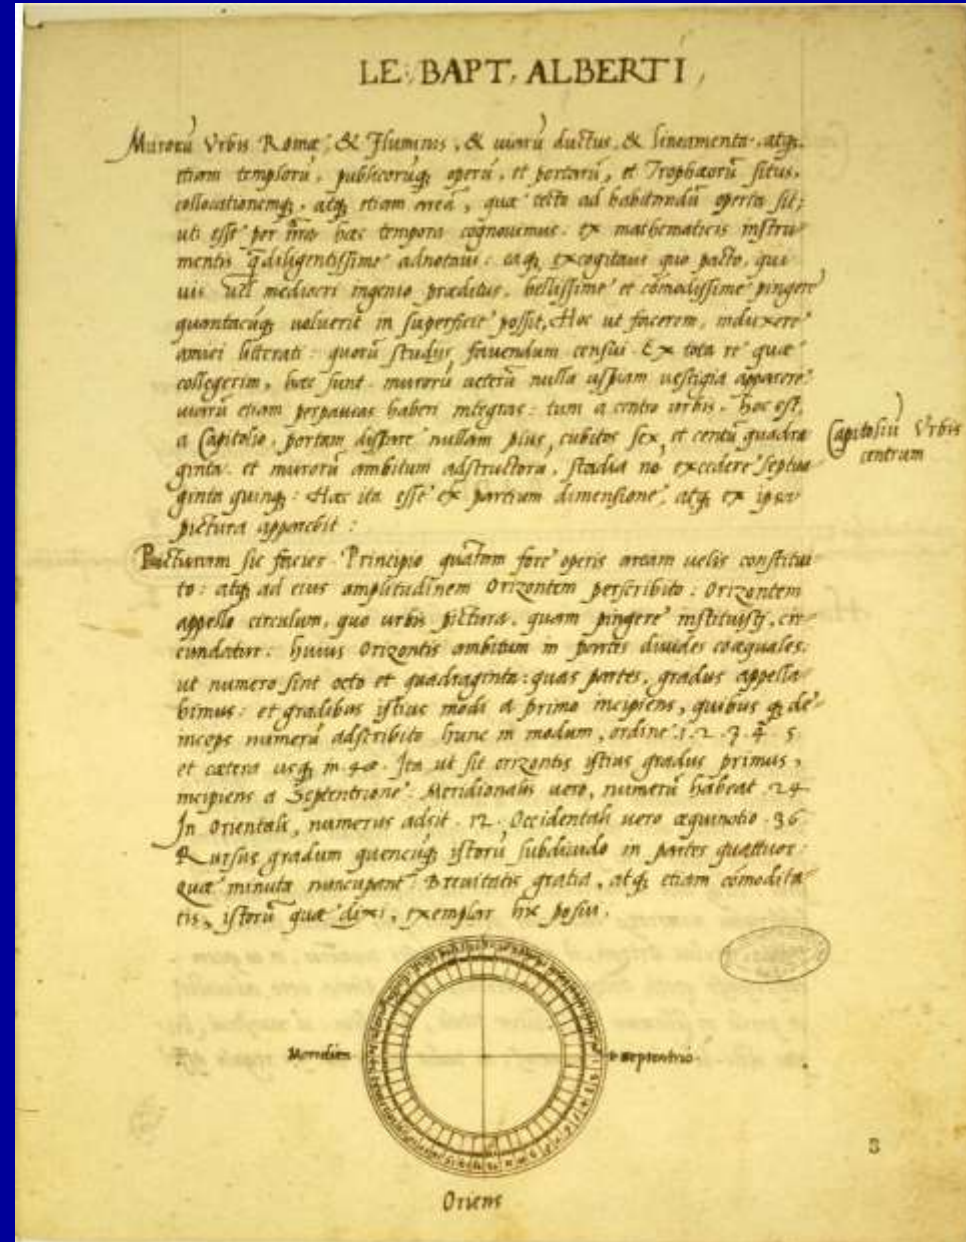 LE. BAPT. ALBERTI,
Murorũ Vrbis Romæ, & Fluminis, & uiarũ ductus, & lineamenta, atq;
etiam templorũ, publicorũq; operũ, et portarũ, et Trophæorũ situs,
collocationemq;, atq; etiam aream, quæ tecto ad habitandũ operta sit,
uti esse per nr̃a hæc tempora cognouimus. ex mathematicis instru
mentis q̃ diligentissime adnotaui: eaq; excogitaui quo pacto, qui
uis uel mediocri ingenio præditus, bellissime et cõmodissime pingere
quantacũq; uoluerit in superficie possit, Hoc ut facerem, induxere
amici litterati: quorũ studijs fauendum censui. Ex tota re quæ
collegerim, hæc sunt. murorũ ueterũ nulla uspiam uestigia apparere.
uiarũ etiam perpaucas haberi integras: tum a centro urbis. hoc est,
a Capitolio, portam distare nullam plus, cubitos sex, et centũ quadra
ginta. et murorũ ambitum adstructorũ, stadia nõ excedere septua
ginta quinq;: Hæc ita esse ex partium dimensione, atq; ex ipsa
pictura apparebit:
Capitoliũ Vrbis
centrum
Picturam sic facies. Principio quãtam fore operis aream uelis constitui
to: atq; ad eius amplitudinem Orizontem perscribito: Orizontem
appello circulum, quo urbis pictura, quam pingere instituisti, cir
cundatur. huius Orizontis ambitum in partes diuides coæquales.
ut numero sint octo et quadraginta: quas partes, gradus appella
bimus: et gradibus istius modi a primo incipiens, quibus q; de
inceps numerũ adscribito hunc in modum, ordine .1. 2. 3. 4. 5.
et cætera usq; in 48. Ita ut sit orizontis istius gradus primus,
incipiens a Septentrione. Meridionalis uero, numerũ habeat .24
In Orientali, numerus adsit .12. Occidentali uero æquinotio .36
Rursus gradum quencũq; istorũ subdiuido in partes quattuor:
Quæ minuta nuncupant. Breuitatis gratia, atq; etiam cõmodita
tis, istorũ quæ dixi, exemplar hic posui.
Meridies
Septentrio
Oriens
3